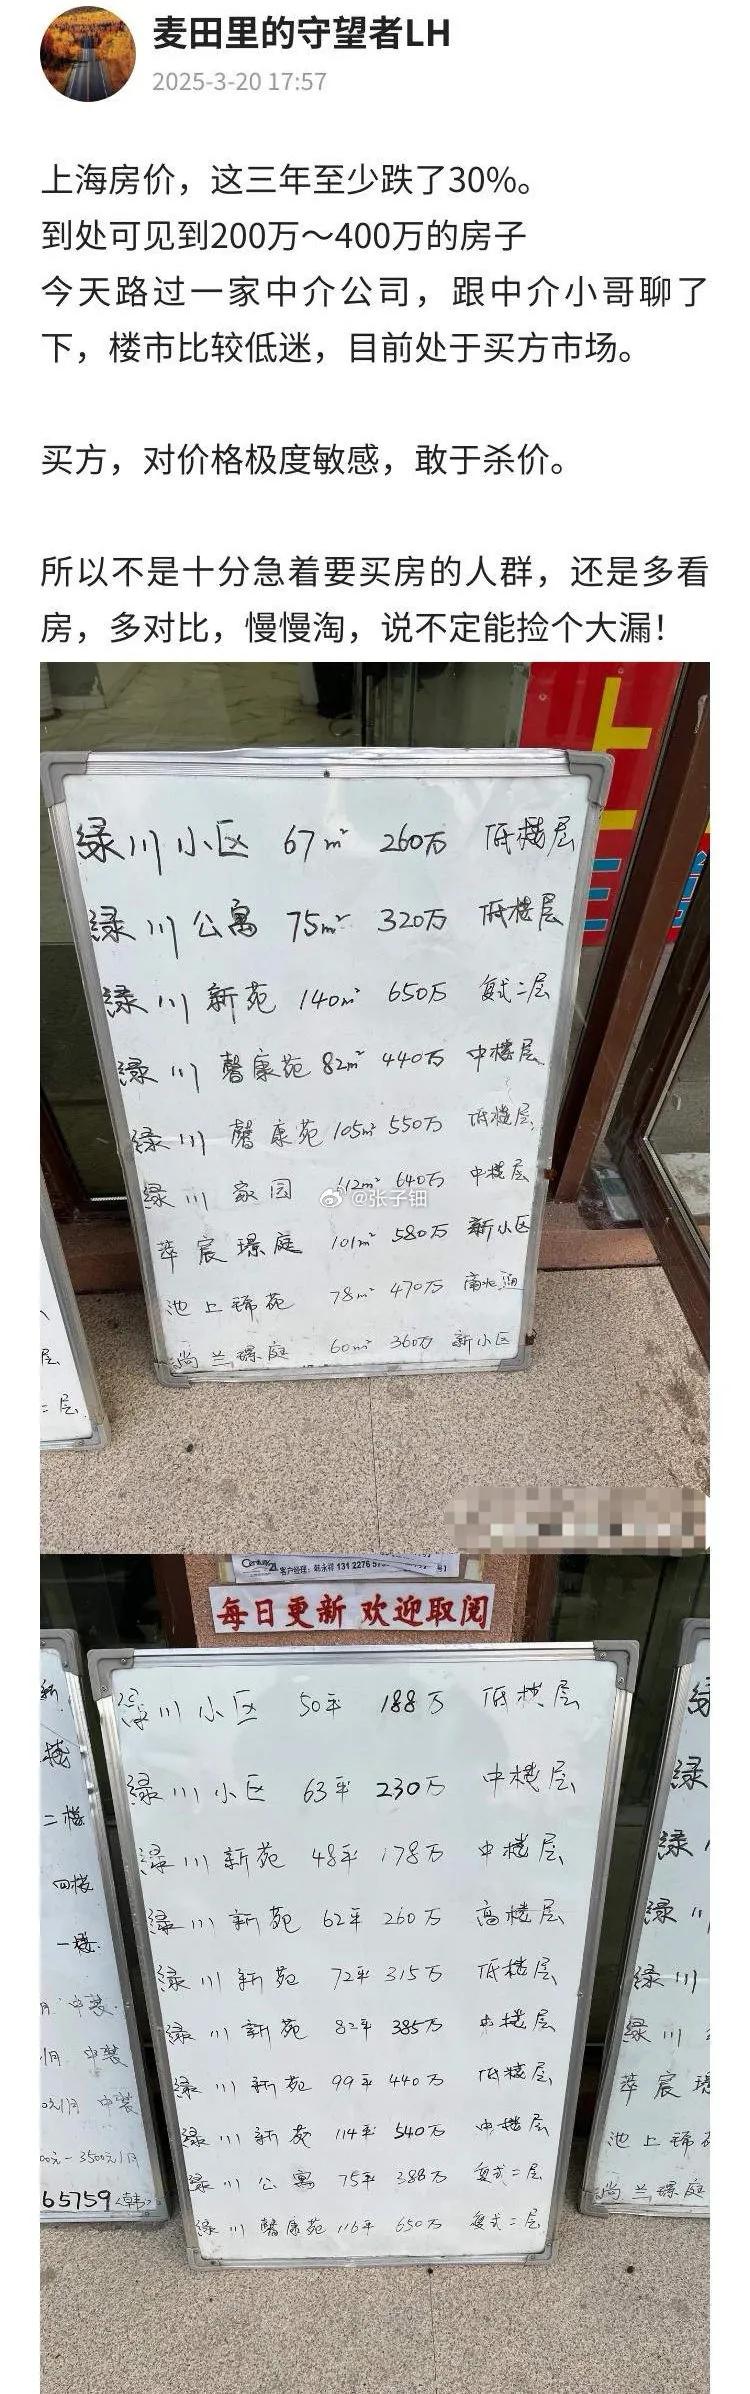 麦田里的守望者LH
2025-3-20 17:57
上海房价，这三年至少跌了30%。
到处可见到200万～400万的房子
今天路过一家中介公司，跟中介小哥聊了
下，楼市比较低迷，目前处于买方市场。
买方，对价格极度敏感，敢于杀价。
所以不是十分急着要买房的人群，还是多看
房，多对比，慢慢淘，说不定能捡个大漏！
绿川小区 67m² 260万 低楼层
绿川公寓 75m² 320万 低楼层
绿川新苑 140m² 650万 复式二层
绿川馨康苑 82m² 440万 中楼层
绿川馨康苑 105m² 550万 低楼层
绿川家园 112m² 640万 中楼层
@张子钿
萃宸璟庭 101m² 580万 新小区
池上锦苑 78m² 470万 南北通
尚兰璟庭 60m² 360万 新小区
层
二层
Century 21
客户经理：韩永祥 131 2276
每日更新 欢迎取阅
绿川小区 50平 188万 低楼层
绿川小区 63平 230万 中楼层
绿川新苑 48平 178万 中楼层
绿川新苑 62平 260万 高楼层
绿川新苑 72平 315万 低楼层
绿川新苑 82平 385万 中楼层
绿川新苑 99平 440万 低楼层
绿川新苑 114平 540万 中楼层
绿川公寓 75平 388万 复式二层
绿川馨康苑 116平 650万 复式二层
楼
二楼
四楼
一楼
月 中装
/月 中装
元/月 中装
00元-3500元/月
65759<韩>
绿
绿
绿
绿川
绿川
绿川
萃宸璟
池上锦
尚兰璟庭